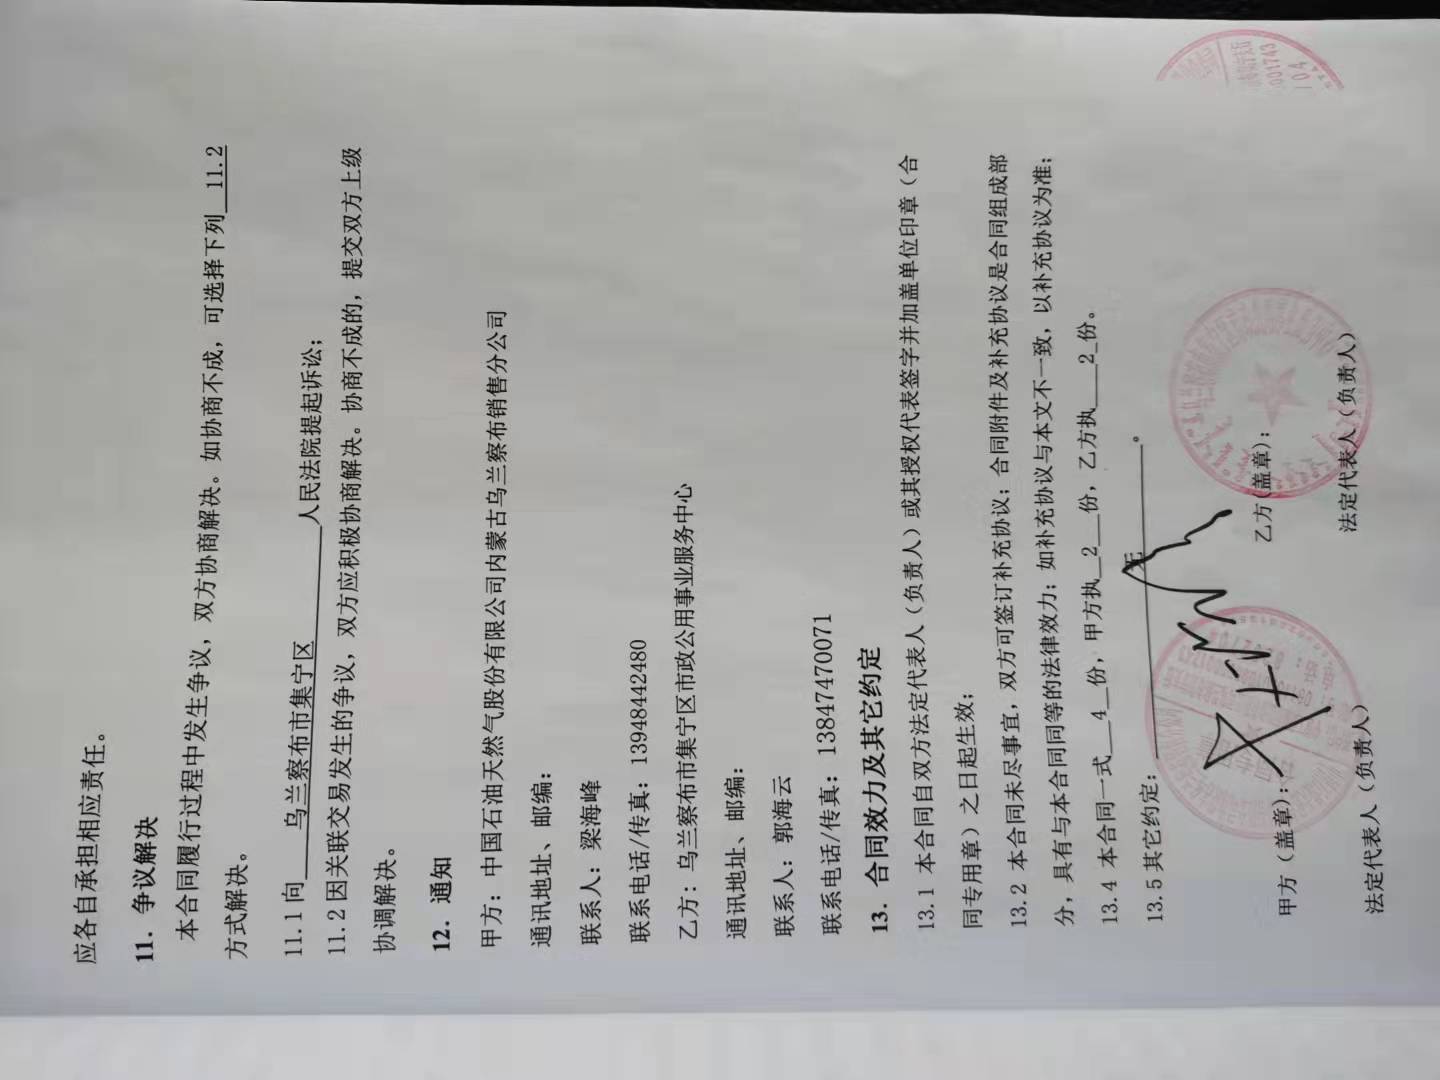 应各自承担相应责任。
11. 争议解决
本合同履行过程中发生争议，双方协商解决。如协商不成，可选择下列 11.2
方式解决。
11.1 向 乌兰察布市集宁区 人民法院提起诉讼；
11.2 因关联交易发生的争议，双方应积极协商解决。协商不成的，提交双方上级
协调解决。
12. 通知
甲方：中国石油天然气股份有限公司内蒙古乌兰察布销售分公司
通讯地址、邮编：
联系人：梁海峰
联系电话/传真：13948442480
乙方：乌兰察布市集宁区市政公用事业服务中心
通讯地址、邮编：
联系人：郭海云
联系电话/传真：13847470071
13. 合同效力及其它约定
13.1 本合同自双方法定代表人（负责人）或其授权代表签字并加盖单位印章（合
同专用章）之日起生效；
13.2 本合同未尽事宜，双方可签订补充协议；合同附件及补充协议是合同组成部
分，具有与本合同同等的法律效力；如补充协议与本文不一致，以补充协议为准；
13.4 本合同一式 4 份，甲方执 2 份，乙方执 2 份。
13.5 其它约定： 无 。
甲方（盖章）： 乙方（盖章）：
法定代表人（负责人） 法定代表人（负责人）